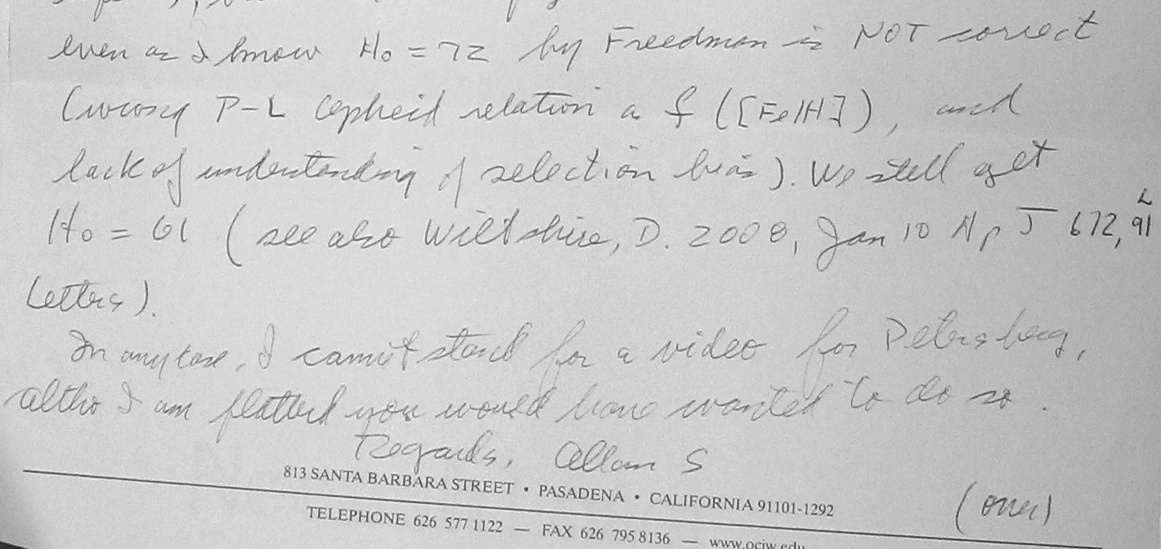 even as I know H₀ = 72 by Freedman is NOT correct
(wrong P-L Cepheid relation as f ([Fe/H]), and
lack of understanding of selection bias). We still get
H₀ = 61 (see also Wiltshire, D. 2008, Jan 10 Ap J 672, L91
Letters).
In any case, I cannot stand for a video for Petersberg,
altho I am flattered you would have wanted to do so.
Regards, Allan S
813 SANTA BARBARA STREET • PASADENA • CALIFORNIA 91101-1292
(over)
TELEPHONE 626 577 1122 — FAX 626 795 8136 — www.ociw.edu